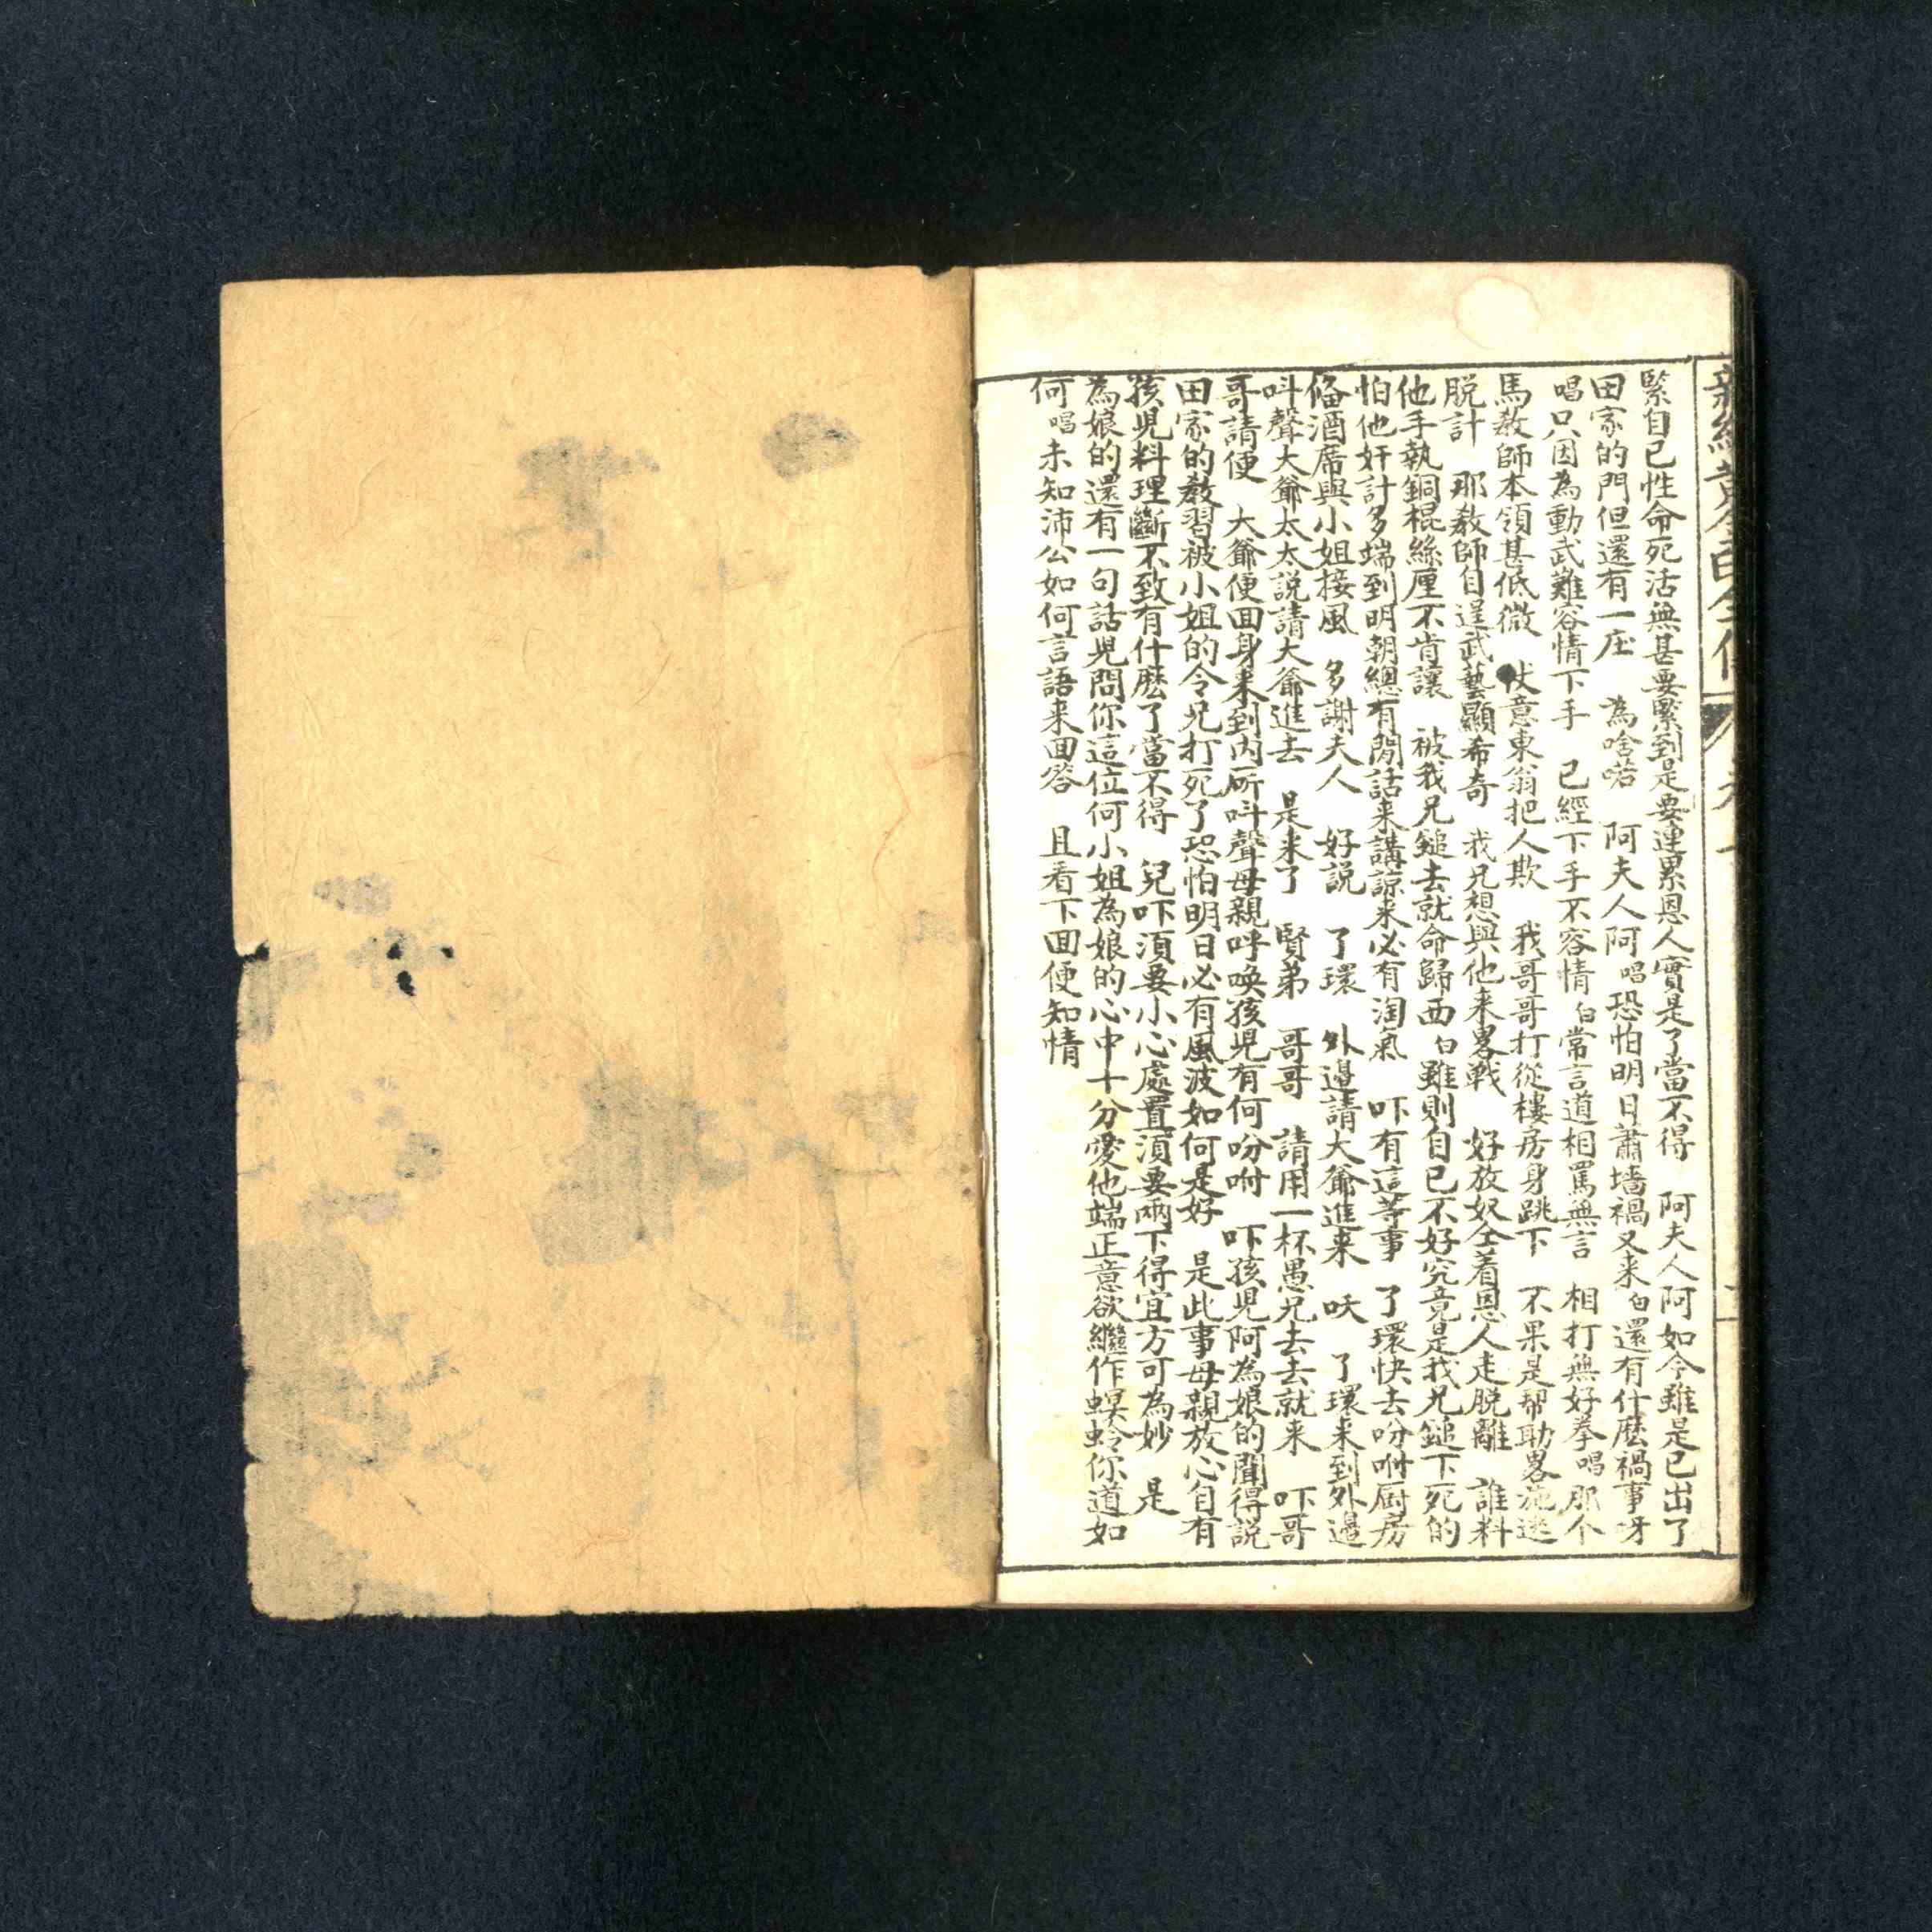 緊自己性命死活無甚要緊到是要連累恩人實是了當不得　阿夫人阿如今雖是已出了
田家的門但還有一庄　為啥啫　阿夫人阿唱恐怕明日蕭墻禍又来白還有什麽禍事呀
唱只因為動武難容情下手　已經下手不容情白常言道相罵無言　相打無好拳唱那个
馬教師本領甚低微　仗意東翁把人欺　我哥哥打從樓房身跳下　不果是帮助畧施逃
脱計　那教師自逞武藝顯希奇　我兄想與他来畧戰　好放奴全着恩人走脱離　誰料
他手執銅棍絲厘不肯讓　被我兄鎚去就命歸西白雖則自己不好究竟是我兄鎚下死的
怕他奸計多端到明朝總有閒話来講諒来必有淘氣　吓有這等事　了環快去吩咐厨房
俻酒席與小姐接風　多謝夫人　好説　了環　外邉請大爺進来　呋　了環来到外邉
呌聲大爺太太説請大爺進去　是来了　賢弟　哥哥　請用一杯愚兄去去就来　吓哥
哥請便　大爺便回身来到内所呌聲母親呼喚孩児有何吩咐　吓孩児阿為娘的聞得説
田家的教習被小姐的令兄打死了恐怕明日必有風波如何是好　是此事母親放心自有
孩児料理斷不致有什麽了當不得　兒吓湏要小心處置湏要兩下得宜方可為妙　是
為娘的還有一句話児問你這位何小姐為娘的心中十分愛他端正意欲繼作螟蛉你道如
何唱未知沛公如何言語来回答　且看下回便知情